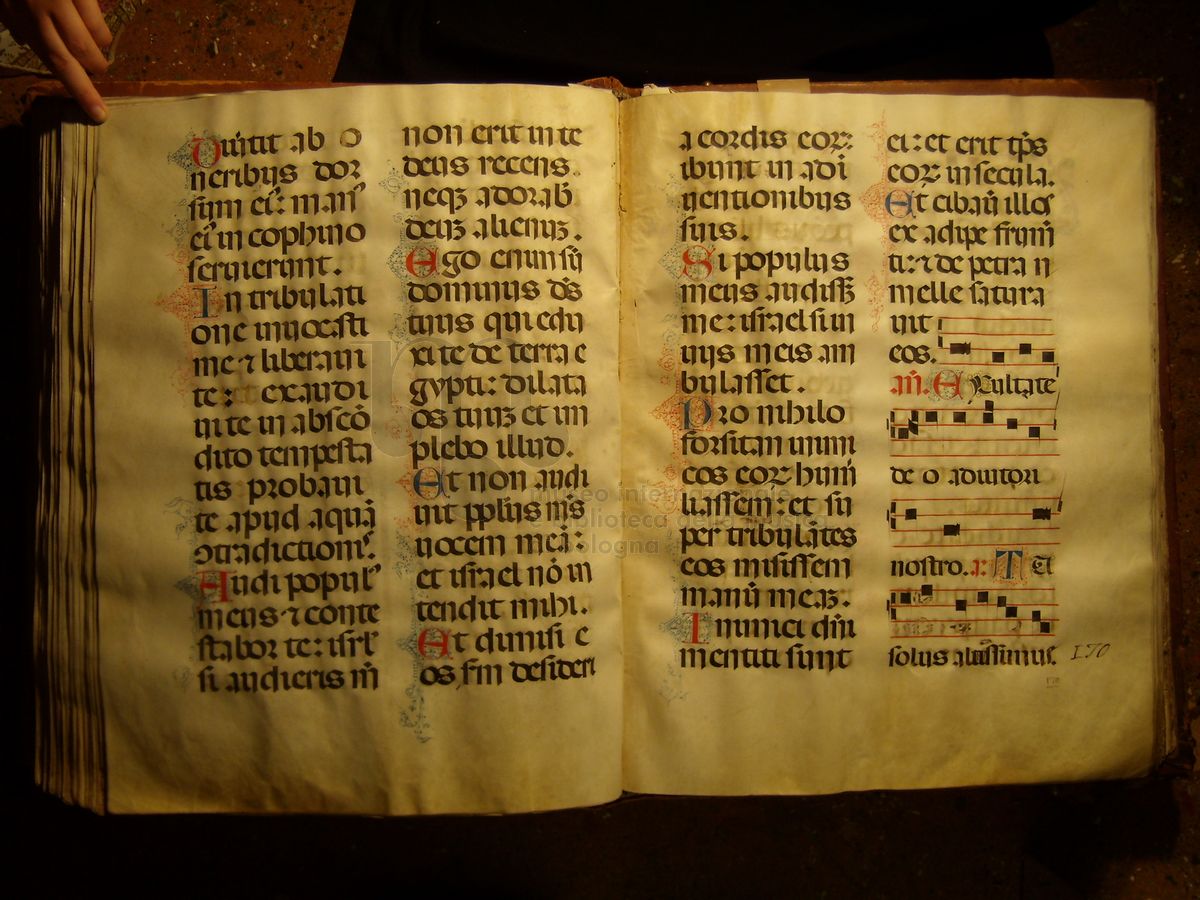 Diuitit ab o
neribus dor
sum ei: man'
ei' in cophino
seruierunt.
In tribulati
one inuocasti
me ⁊ liberaui
te: exaudi
ui te in absco᷑
dito tempesta
tis probaui
te apud aquā
ɔtradiction'.
Audi popul'
meus ⁊ conte
stabor te: isrl'
si audieris m̄
non erit in te
deus recens
neqꝫ adorab'
deuꝫ alienuꝫ.
Ego enim sū
dominus d̄s
tuus qui edu
xi te de terra e
gypti: dilata
os tuuꝫ et im
plebo illud.
Et non audi
uit pplus m̄s
uocem meā:
et israel nō in
tendit mihi.
Et dimisi e
os s̄m desideri
a cordis coꝝ:
ibunt in adī
uentionibus
suis.
Si populus
meus audissꝫ
me: israel si in
uijs meis am
bulasset.
Pro nihilo
forsitan inimi
cos eoꝝ humī
liassem: et su
per tribulātes
eos misissem
manū meaꝫ.
Inimici dn̄i
mentiti sunt
ei: et erit tp̄s
eoꝝ in secula.
Et cibauī illos
ex adipe frum̄
ti: ⁊ de petra ꝫ
melle satura
uit
eos.
an̄. Exultate
deo adiutori
nostro. a: Tu
solus altissimus.
170
170
museo internazionale
e biblioteca della musica
bologna